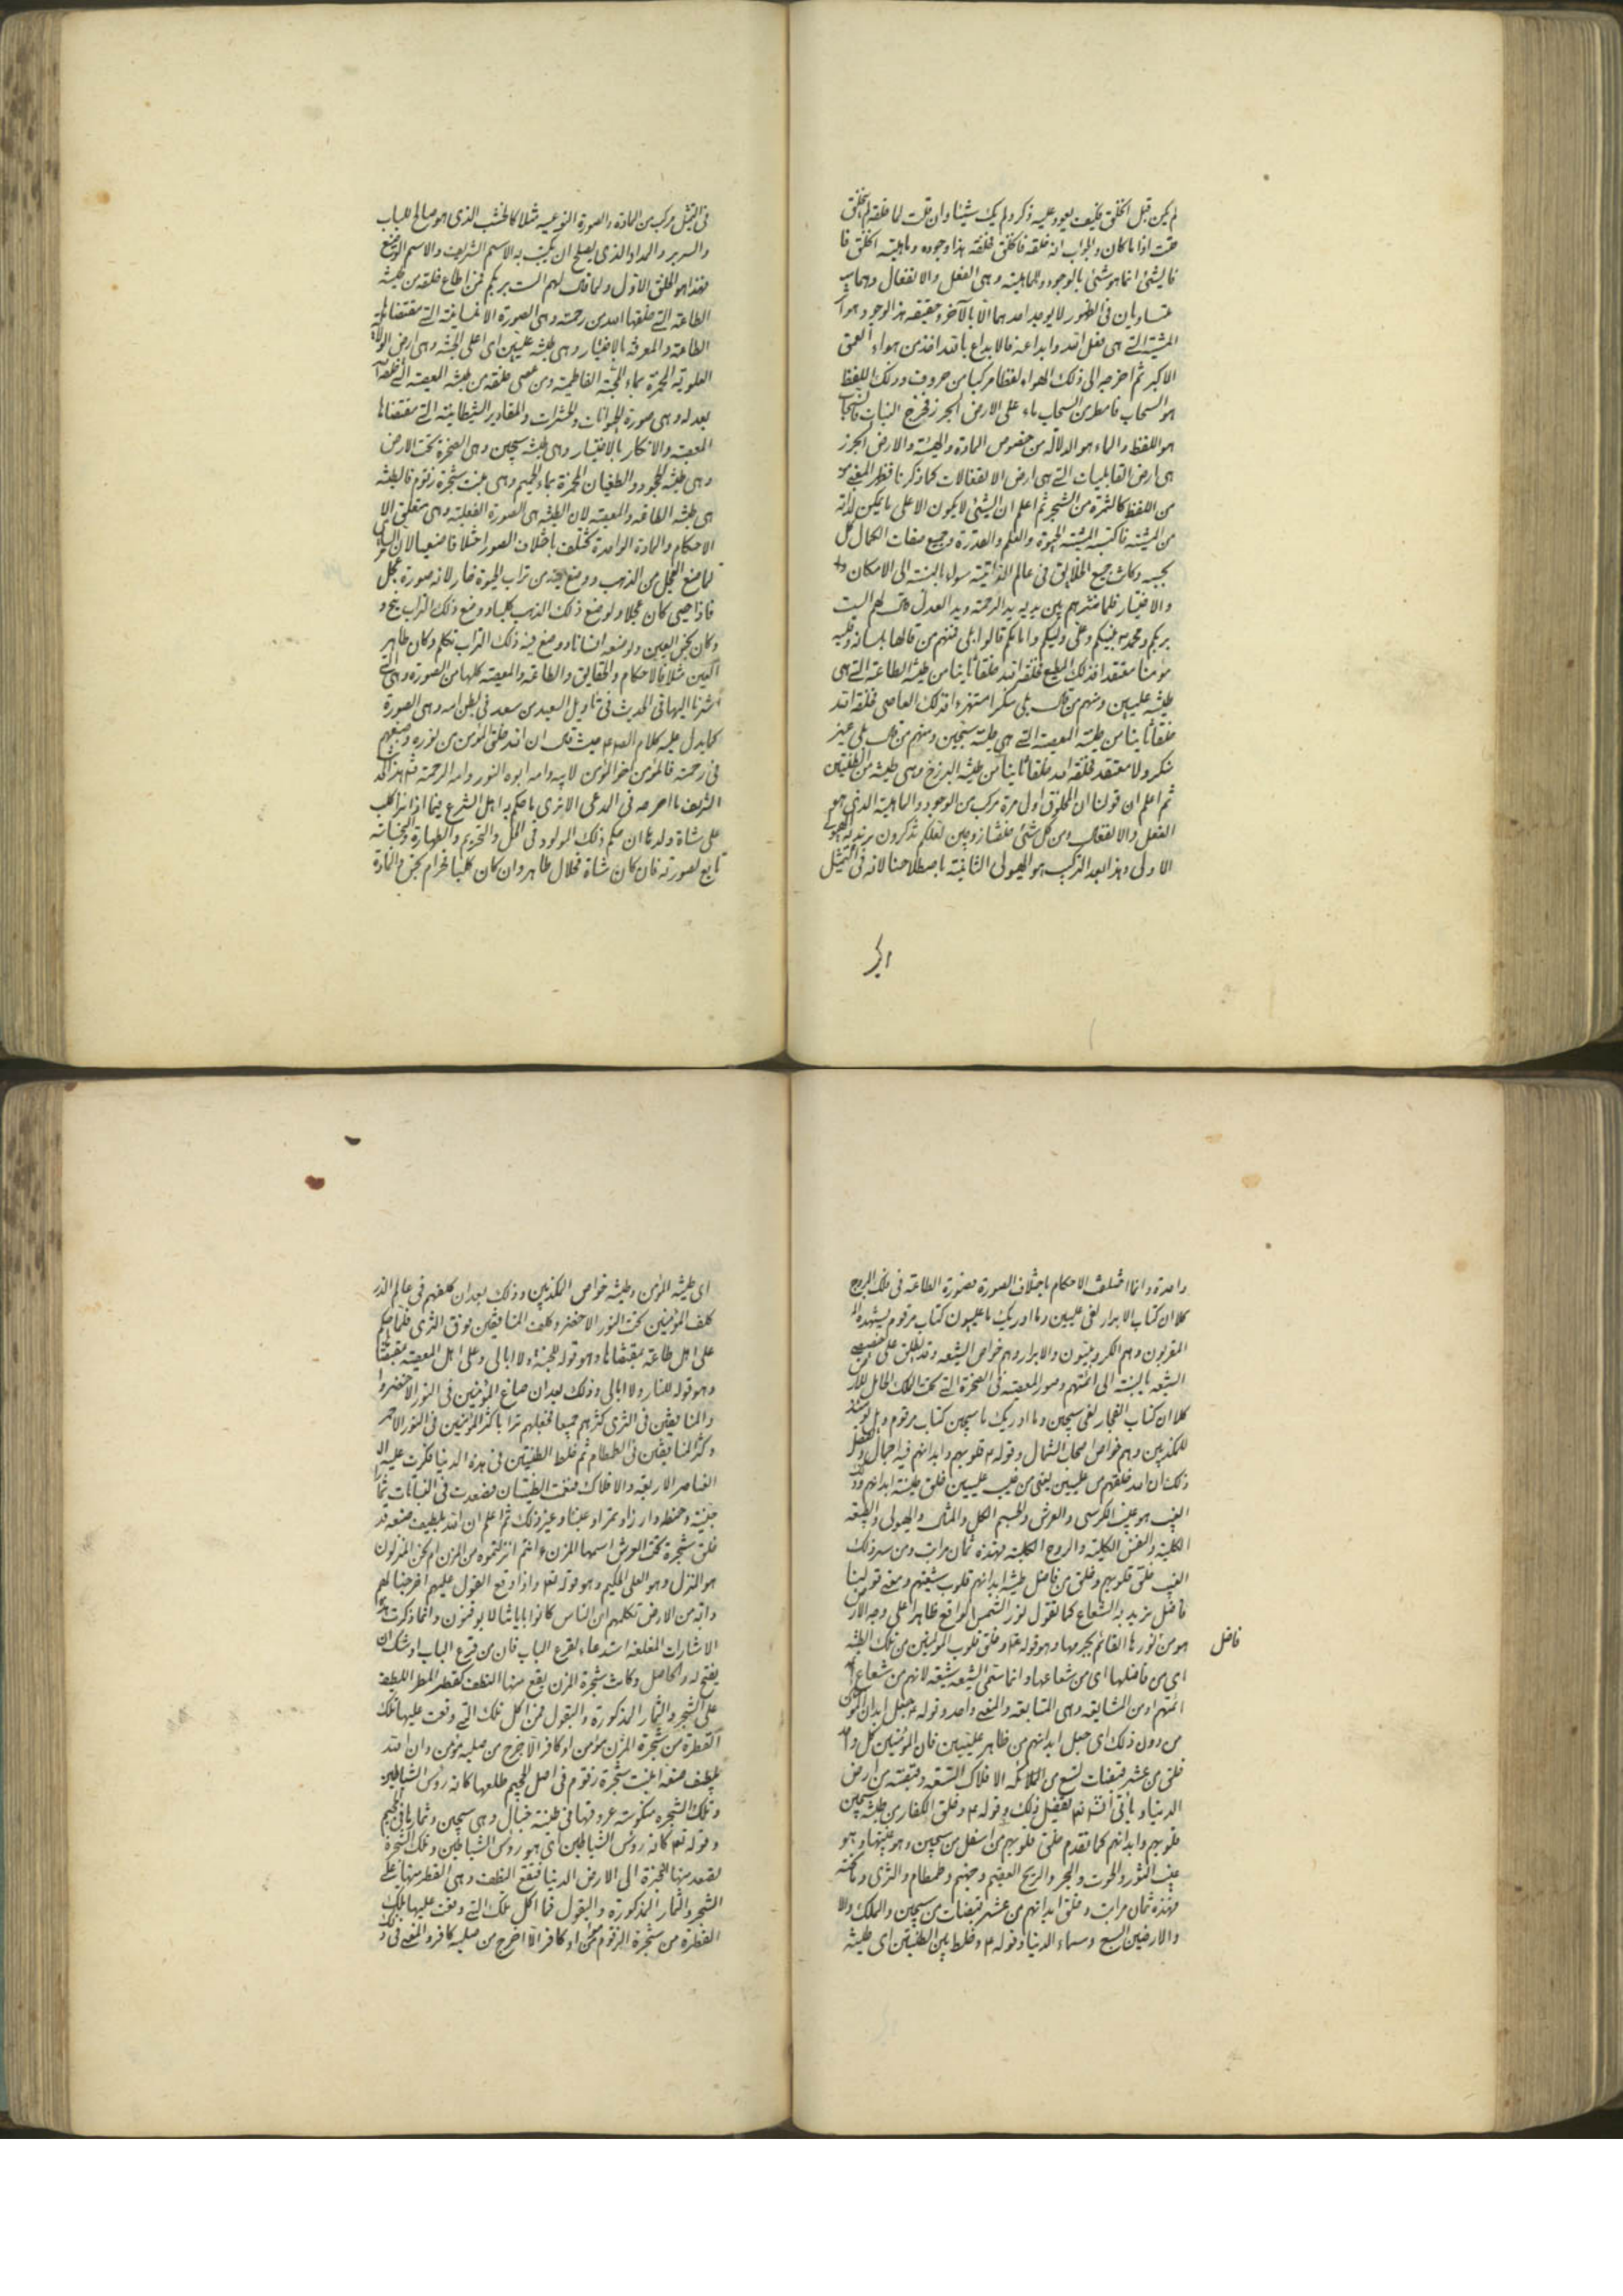 لم يكن قبل الخلق فكيف يعود عليه ذكر ولم يك شيئا وان قلت لما خلقه لم يخلق
قلت اذا ما كان والجواب انه خلقه فانخلق فخلقه هذا وجوده وماهيته انخلق فا
فالشئ انما هو شئ بالوجود والماهية وهى الفعل والانفعال وهما
متساويان فى الظهور لا يوجد احدهما الا بالآخر وحقيقة هذا الوجود هو
المشية التى هى فعل الله وابداعه فالابداع بالله اخذ من هواء العمق
الاكبر ثم اخرجه الى ذلك الهواء لفظا مركبا من حروف وذلك اللفظ
هو السحاب فامطر من السحاب ماء على الارض الجرز فخرج النبات فالسحاب
هو اللفظ والماء هو الدلالة من خصوص المادة والهيئة والارض الجرز
هى ارض القابليات التى هى ارض الانفعالات كما ذكرنا فظهر المعنى
من اللفظ كالثمرة من الشجر ثم اعلم ان الشئ لا يكون الا على ما يمكن لذاته
من المشية فاكتسبه المشية الحيوة والعلم والقدرة وجميع صفات الكمال كل
بحسبه وكانت جميع الخلائق فى عالم الذر سواء بالنسبة الى الامكان
والاختيار فلما نثرهم بين يديه يد الرحمة ويد العدل قال لهم الست
بربكم ومحمد نبيكم وعلى وليكم وامامكم قالوا بلى فمنهم من قالها بلسانه وقلبه
مؤمنا معتقدا فذلك المطيع فخلقه الله خلقا ثانيا من طينة الطاعة التى هى
طينة عليين ومنهم من قال بلى منكرا مستهزءا فذلك العاصى فخلقه الله
خلقا ثانيا من طينة المعصية التى هى طينة سجين ومنهم من قال بلى غير
منكر ولا معتقد فخلقه الله خلقا ثانيا من طينة البرزخ وهى طينة من الطينتين
ثم اعلم ان قولنا ان المخلوق اول مرة مركب من الوجود والماهية الذى هو
الفعل والانفعال ومن كل شئ خلقنا زوجين لعلكم تذكرون نريد به الهيولى
الاولى وهذا بعد التركيب هو الهيولى الثانية باصطلاحنا لانه فى التمثيل
فى التمثيل مركب من المادة والصورة النوعية مثلا كالخشب الذى هو صالح للباب
والسرير والمداد الذى يصلح ان يكتب به الاسم الشريف والاسم الوضيع
فهذا هو الخلق الاول ولما قال لهم الست بربكم فمن اطاع خلقه من طينة
الطاعة التى خلقها الله من رحمته وهى الصورة الانسانية التى مقتضاها
الطاعة والمعرفة بالاختيار وهى طينة عليين اى اعلى الجنة وهى ارض الولاية
العلوية المخمرة بماء المحبة الفاطمية ومن عصى خلقه من طينة المعصية التى خلقها
بعدله وهى صورة الحيوانات والحشرات والمقادير الشيطانية التى مقتضاها
المعصية والانكار بالاختيار وهى طينة سجين وهى الصخرة تحت الارض
وهى طينة الجحود والطغيان المخمرة بماء الحميم وهى منبت شجرة زقوم فالطينة
هى طينة الطاعة والمعصية لان الطينة هى الصورة الفعلية وهى متعلق
الاحكام والمادة الواحدة تختلف باختلاف الصور اختلافا ضعيا
لما صنع العجل من الذهب ووضع فيه من تراب الحيوة خار لانه صورة عجل
فاذا حيى كان عجلا ولو صنع ذلك الذهب كلبا ووضع ذلك التراب نبح و
وكان نجس العين ولو صنعه انسانا ووضع فيه ذلك التراب تكلم وكان طاهر
العين مثلا فالاحكام والحقايق والطاعة والمعصية كلها من الصورة وهى التى
اشرنا اليها فى الحديث فى تاويل السعيد من سعد فى بطن امه وهى الصورة
كما يدل عليه كلام الصادق حيث قال ان الله خلق المؤمن من نوره وصبغهم
فى رحمته فالمؤمن اخو المؤمن لابيه وامه ابوه النور وامه الرحمة
الشريف ما اصرحه فى المدعى الا ترى ما حكم به اهل الشرع فيما اذا نزا كلب
على شاة ولدها ان حكم ذلك المولود فى الحل والتحريم والطهارة والنجاسة
تابع لصورته فان كان شاة فحلال طاهر وان كان كلبا فحرام نجس والمادة
واحدة وانما اختلفت الاحكام باختلاف الصورة فصورة الطاعة فى فلك البروج
كلا ان كتاب الابرار لفى عليين وما ادريك ما عليون كتاب مرقوم يشهده
المقربون وهم الكروبيون والابرار وهم خواص الشيعة وقد يطلق على
الشيعة بالنسبة الى ائمتهم وصور المعصية فى الصخرة التى تحت الملك الحامل للارض
كلا ان كتاب الفجار لفى سجين وما ادريك ما سجين كتاب مرقوم ويل يومئذ
للمكذبين وهم خواص اصحاب الشمال وقوله ع قلوبهم وابدانهم فيه اجمال
ذلك ان الله خلقهم من عليين يعنى من عليين فخلق طينة ابدانهم
الغيب هو عليين الكرسى والعرش والجسم الكل والمثال والهيولى والطبيعة
الكلية والنفس الكلية والروح الكلية فهذه ثمان مراتب ومن سر ذلك
الغيب خلق قلوبهم وخلق من فاضل طينة ابدانهم قلوب شيعتهم ومعنى قولنا
فاضل نريد به الشعاع كما نقول نور الشمس الواقع ظاهرا على وجه الارض
هو من نورها القائم بجرمها وهو قوله ع وخلق قلوب المؤمنين من تلك الطينة
فاضل
اى من فاضلها اى من شعاعها وانما سمى الشيعة شيعة لانهم من شعاع
ائمتهم او من المشايعة وهى المتابعة والمعنى واحد وقوله ع جعل ابدان المؤمنين
من دون ذلك اى جعل ابدانهم من ظاهر عليين فان المؤمنين كل واحد
خلق من عشر قبضات تسع من الافلاك التسعة وقبضة من ارض
الدنيا وياتى انشاء الله تفصيل ذلك وقوله ع وخلق الكفار من طينة سجين
قلوبهم وابدانهم كما تقدم خلق قلوبهم من اسفل من سجين وهو عليها وهو
غيب الثور والحوت والبحر والريح العقيم وجهنم وطمطام والثرى وما تحته
فهذه ثمان مراتب وخلق ابدانهم من عشر قبضات من سجين والملك
والارضين السبع وسماء الدنيا وقوله ع وخلط بين الطينتين اى طينة
اى طينة المؤمن وطينة خواص المكذبين وذلك بعد ان كلفهم فى عالم الذر
كلف المؤمنين تحت النور الاخضر وكلف المنافقين فوق الثرى فلما حكم
على اهل طاعته بمقتضاها وهو قوله للجنة ولا ابالى وعلى اهل المعصية بمقتضاها
وهو قوله للنار ولا ابالى وذلك بعد ان صاغ المؤمنين فى النور الاخضر
والمنافقين فى الثرى كثرهم جميعا فجعلهم ترابا كثر المؤمنين فى النور الاحمر
وكثر المنافقين فى الطمطام ثم خلط الطينتين فى هذه الدنيا فكرت عليها
العناصر الاربعة والافلاك فنفت الطينتان فصعدت فى النباتات ثمارا
جنية وحنطة وارزا وتمرا وعنبا وغير ذلك ثم اعلم ان الله بلطيف صنعه قد
خلق شجرة تحت العرش اسمها المزن ءانتم انزلتموه من المزن ام نحن المنزلون
هو المنزل وهو العلى الحكيم وهو قوله تع واذا وقع القول عليهم اخرجنا لهم
دابة من الارض تكلمهم ان الناس كانوا باياتنا لا يوقنون وانما ذكرت
الاشارات المغلقة استدعاء لقرع الباب فان من قرع الباب اوشك ان
يفتح له والحاصل وكانت شجرة المزن يقع منها النطف كقطر المطر اللطيف
على الشجر والثمار المذكورة والبقول فمن اكل تلك التى وقعت عليها تلك
القطرة من شجرة المزن مؤمن او كافر الا اخرج من صلبه مؤمن وان الله
بلطف صنعه انبت شجرة زقوم فى اصل الجحيم طلعها كانه رؤس الشياطين
وتلك الشجرة منكوسة عروقها فى طينة خبال وهى سجين وثمارها فى الجحيم
وقوله تع كانه رؤس الشياطين اى هو رؤس الشياطين وتلك الشجرة
يصعد منها ابخرة الى الارض الدنيا فتقع النطف وهى القطر منها على
الشجر والثمار المذكورة والبقول فما اكل تلك التى وقعت عليها تلك
القطرة من شجرة الزقوم مؤمن او كافر الا اخرج من صلبه كافر والمعنى فى